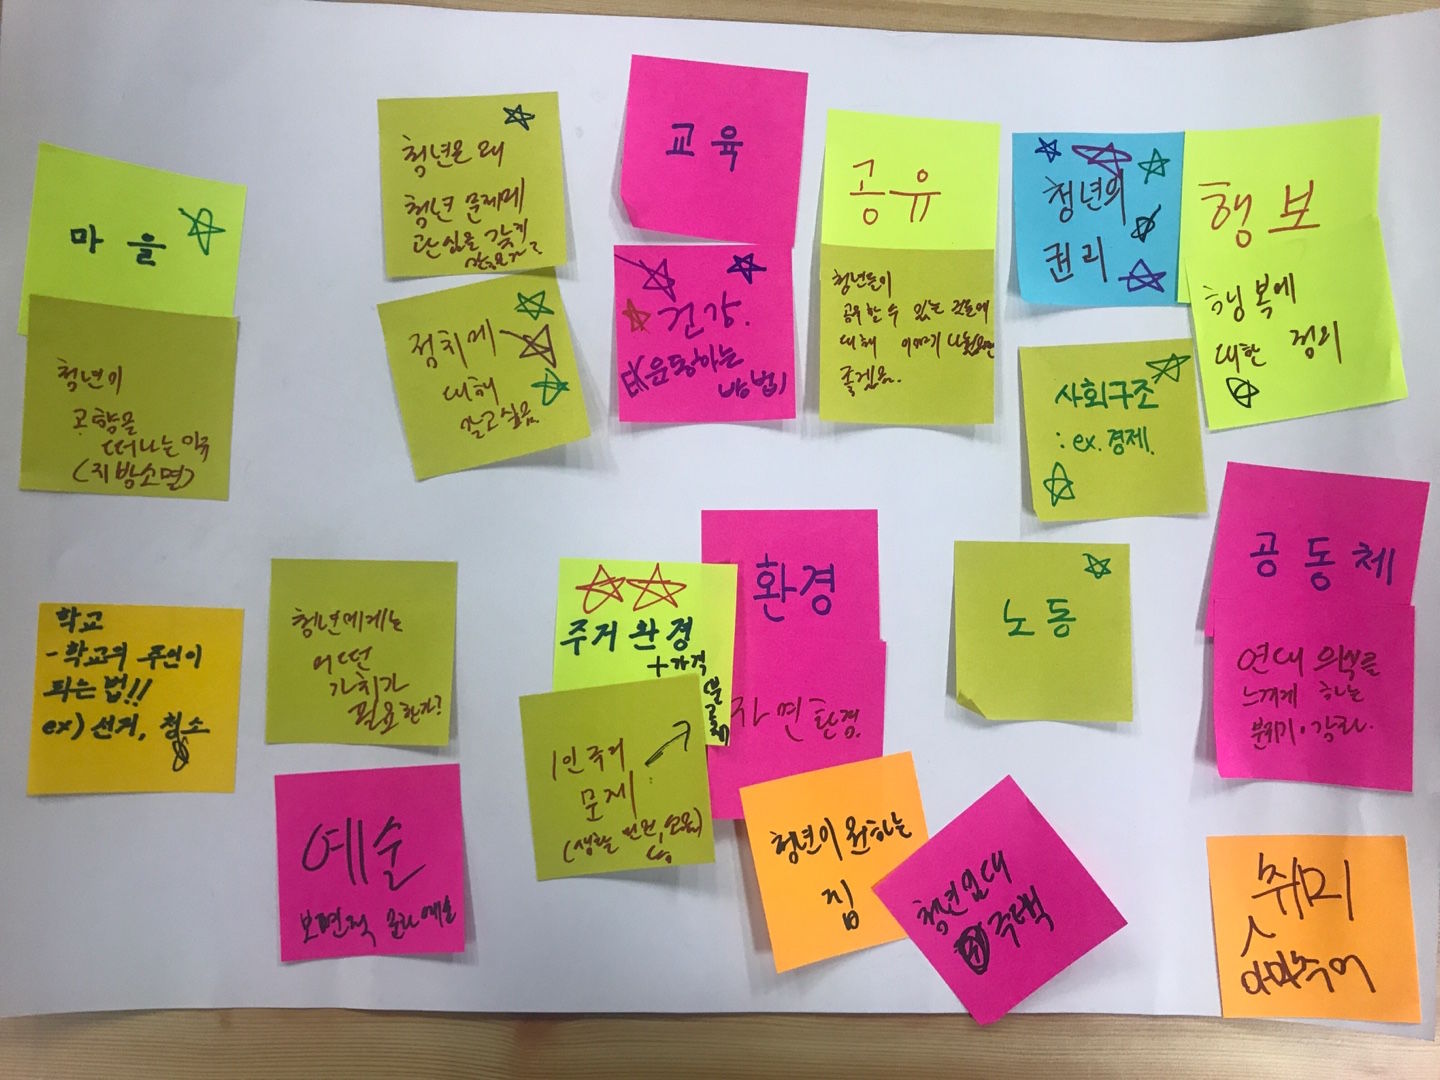 마을
청년이
고향을
떠나는 이유
(지방소멸)
청년은 왜
청년 문제에
관심을 갖지
정치에
대해
알고싶음
교육
건강.
EX 운동하는
방법
공유
청년들이
공유할 수 있는 것들에
대해 이야기 나눴으면
좋겠음.
청년의
권리
행보
행복에
대한 정의
사회구조
: ex. 경제.
학교
-학교의 주인이
되는 법!!
ex) 선거, 청소
청년에게는
어떤
가치가
필요한가?
예술
보편적 문화예술
주거 환경
+가격
1인 주거
문제
환경
자연환경
청년이 원하는
집
청년임대
주택
노동
공동체
연대 의식을
느끼게 하는
분위기. 강화.
취미
아마추어